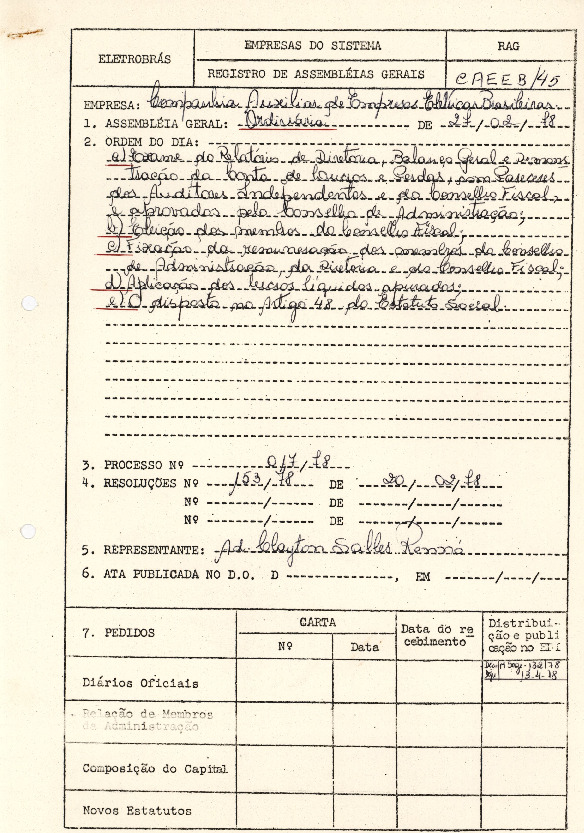 ELETROBRÁS
EMPRESAS DO SISTEMA
REGISTRO DE ASSEMBLÉIAS GERAIS
RAG
CAEEB/45
EMPRESA: Companhia Auxiliar de Empresas Elétricas Brasileiras
1. ASSEMBLÉIA GERAL: Ordinária DE 27/02/78
2. ORDEM DO DIA:
a) Exame do Relatório de Diretoria, Balanço Geral e Demons
tração da Conta de Lucros e Perdas, com Pareceres
dos Auditores Independentes e do Conselho Fiscal,
e aprovados pelo Conselho de Administração;
b) Eleição dos membros do Conselho Fiscal;
c) Fixação da remuneração dos membros do Conselho
de Administração, da Diretoria e do Conselho Fiscal;
d) Aplicação dos lucros líquidos apurados;
e) O disposto no Artigo 48 do Estatuto Social.
3. PROCESSO Nº 017/78
4. RESOLUÇÕES Nº 153/78 DE 20/02/78
Nº / DE / /
Nº / DE / /
5. REPRESENTANTE: Ad. Clayton Salles Rennó
6. ATA PUBLICADA NO D.O. D , EM / /
7. PEDIDOS
CARTA
Nº
Data
Data do re
cebimento
Distribui-
ção e publi
cação no
Diários Oficiais
13-4-78
Relação de Membros
da Administração
Composição do Capital
Novos Estatutos